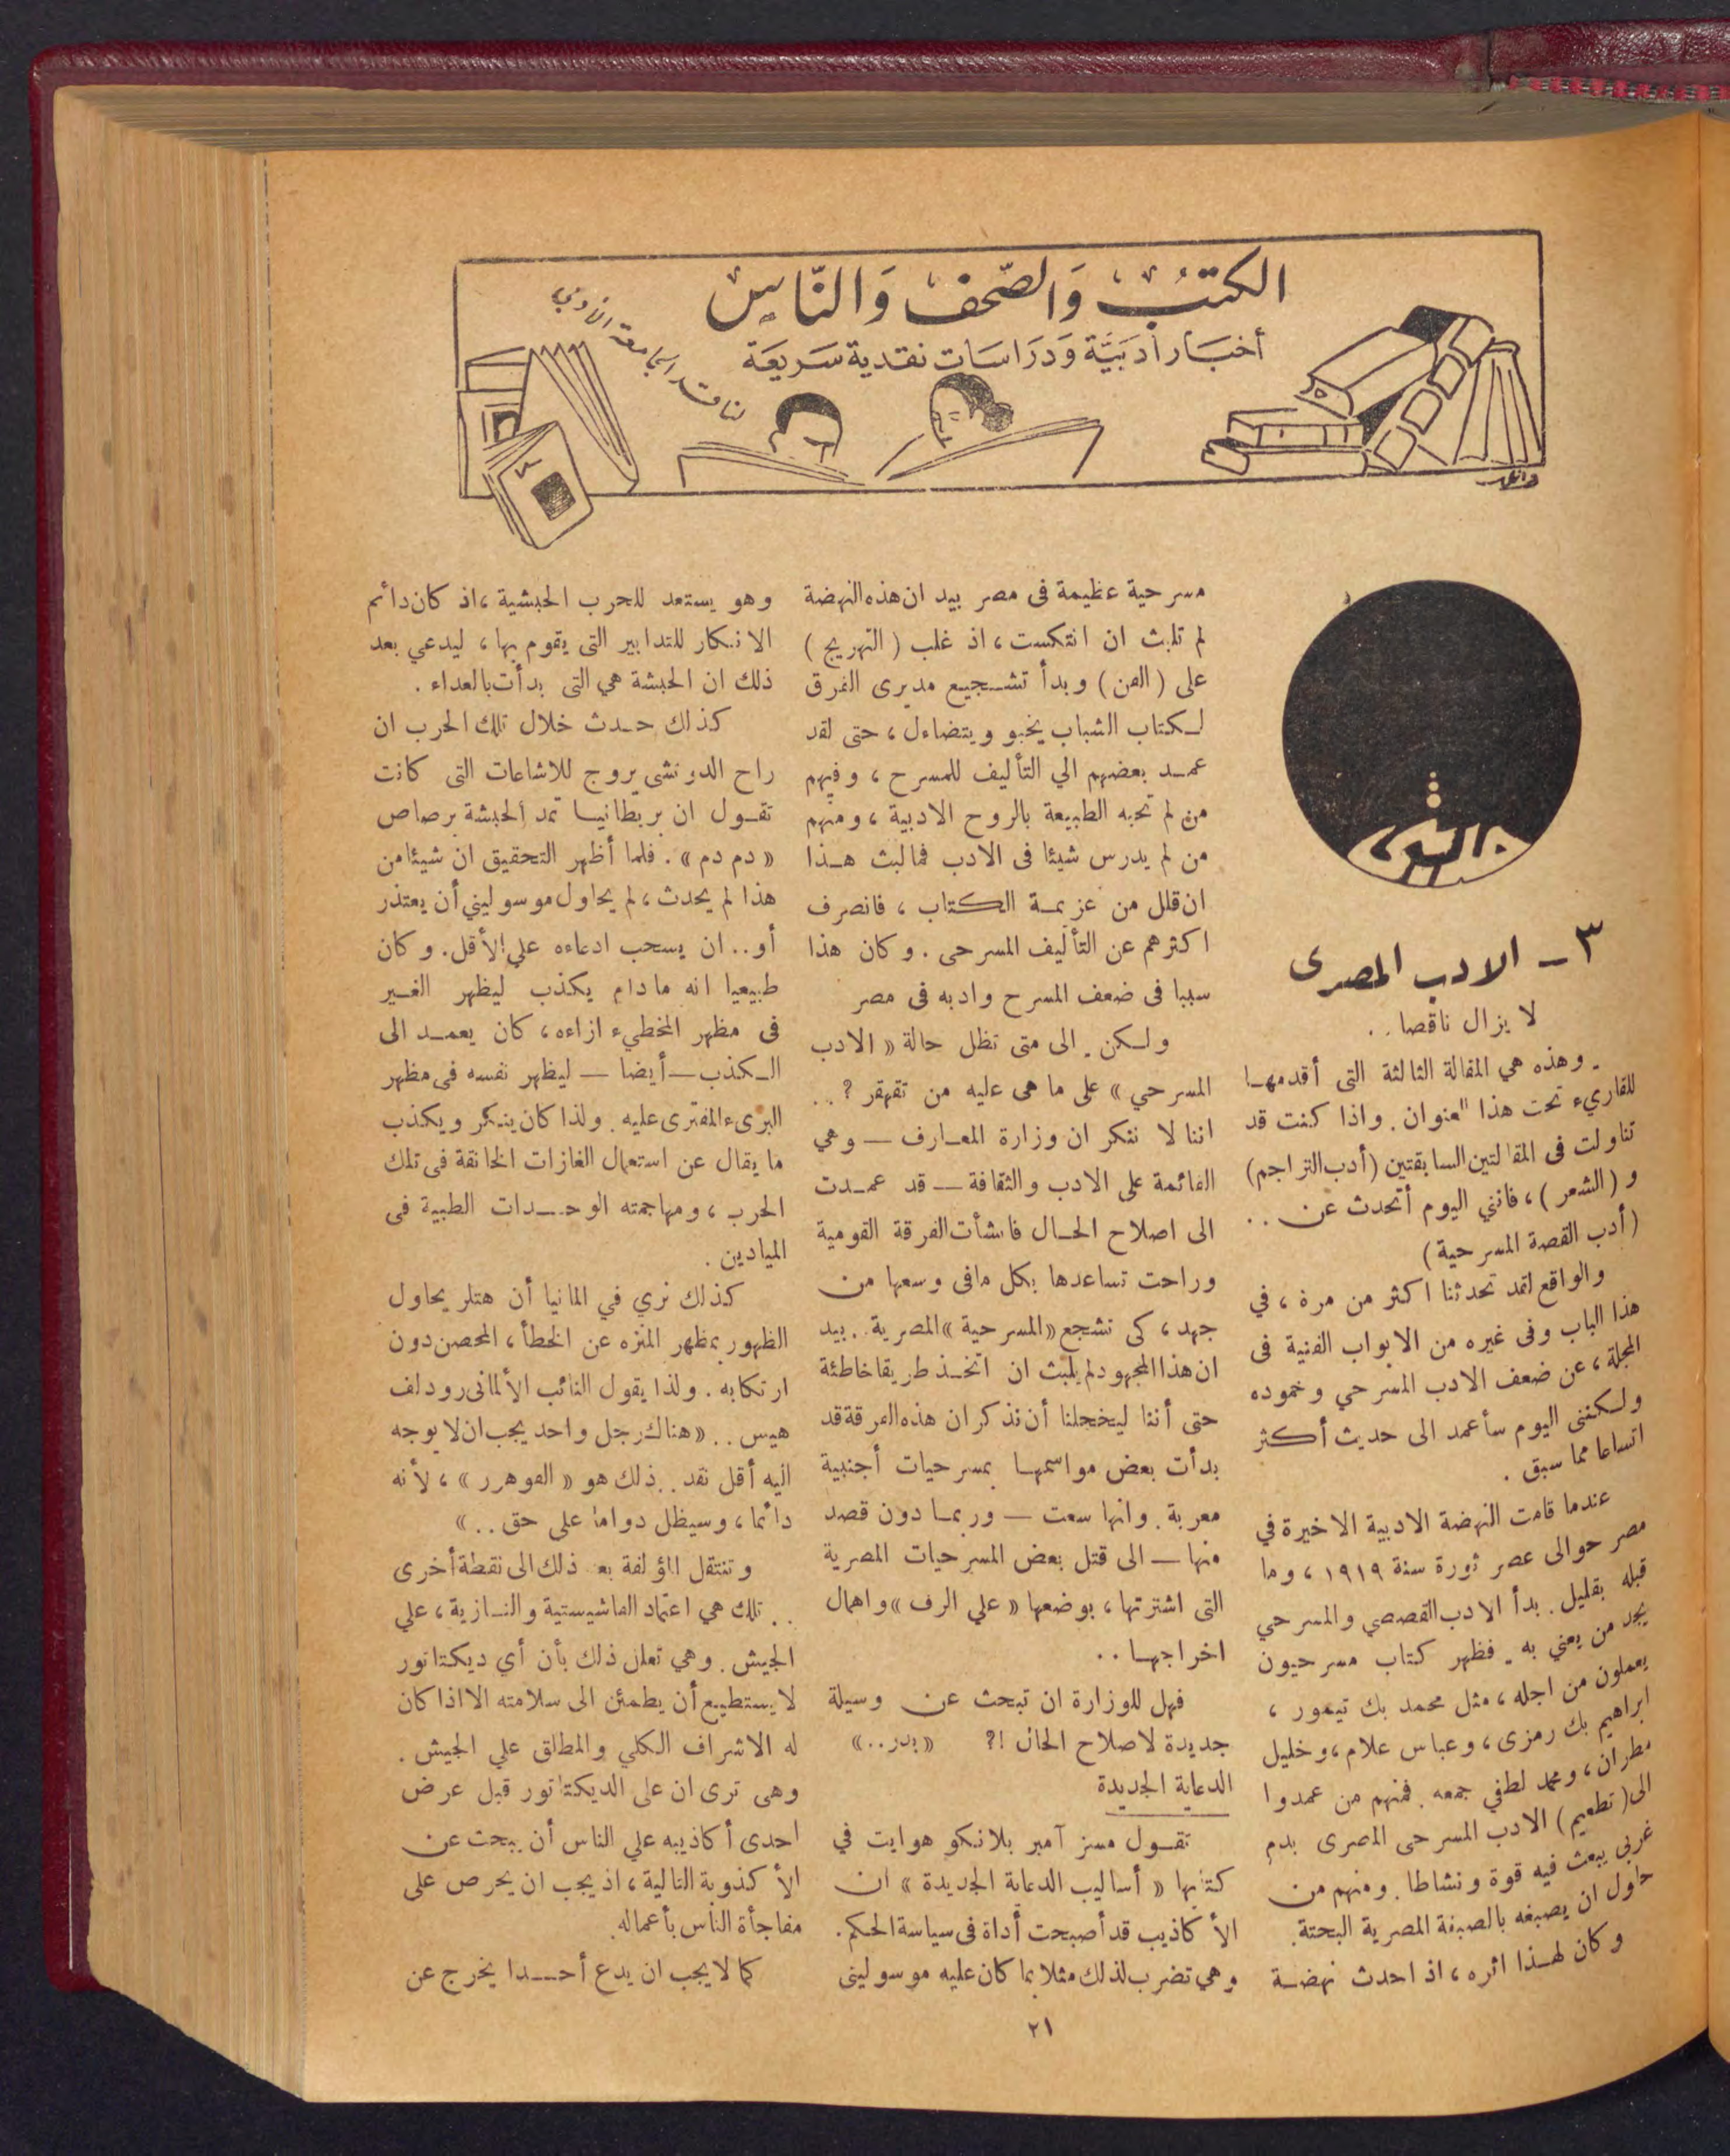 الكتب والصحف والناس
أخبار أدبية ودراسات نقدية سريعة
لناقد الجامعة الأدبي
٣ — الادب المصرى
لا يزال ناقصا . .
وهذه هي المقالة الثالثة التى أقدمها
للقاريء تحت هذا العنوان . واذا كنت قد
تناولت فى المقالتين السابقتين (أدب التراجم)
و ( الشعر ) ، فانني اليوم أتحدث عن . .
( أدب القصة المسرحية )
والواقع لقد تحدثنا اكثر من مرة ، في
هذا الباب وفى غيره من الابواب الفنية فى
المجلة ، عن ضعف الادب المسرحي وخموده
ولكننى اليوم سأعمد الى حديث أكثر
اتساعا مما سبق .
عندما قامت النهضة الادبية الاخيرة في
مصر حوالى عصر ثورة سنة ١٩١٩ ، وما
قبله بقليل . بدأ الادب القصصي والمسرحي
يجد من يعني به . فظهر كتاب مسرحيون
يعملون من اجله ، مثل محمد بك تيمور ،
ابراهيم بك رمزى ، وعباس علام ، وخليل
مطران ، ومحمد لطفي جمعه . فمنهم من عمدوا
الى ( تطعيم ) الادب المسرحى المصرى بدم
غربى يبعث فيه قوة ونشاطا . ومنهم من
حاول ان يصبغه بالصبغة المصرية البحتة .
وكان لهذا اثره ، اذ احدث نهضة
مسرحية عظيمة فى مصر بيد ان هذه النهضة
لم تلبث ان انتكست ، اذ غلب ( التهريج )
على ( الفن ) وبدأ تشجيع مديرى الفرق
لكتاب الشباب يخبو ويتضاءل ، حتى لقد
عمد بعضهم الي التأليف للمسرح ، وفيهم
من لم تحبه الطبيعة بالروح الادبية ، ومنهم
من لم يدرس شيئا فى الادب فمالبث هذا
ان قلل من عزيمة الكتاب ، فانصرف
اكثرهم عن التأليف المسرحى . وكان هذا
سببا فى ضعف المسرح وادبه فى مصر
ولكن . الى متى تظل حالة « الادب
المسرحي » على ما هى عليه من تقهقر ؟ . .
اننا لا ننكر ان وزارة المعارف — وهي
القائمة على الادب والثقافة — قد عمدت
الى اصلاح الحال فانشأت الفرقة القومية
وراحت تساعدها بكل مافى وسعها من
جهد ، كى نشجع « المسرحية » المصرية . . بيد
ان هذا المجهود لم يلبث ان اتخذ طريقا خاطئة
حتى أننا ليخجلنا أن نذكر ان هذه الفرقة قد
بدأت بعض مواسمها بمسرحيات أجنبية
معربة . وانها سعت — وربما دون قصد
منها — الى قتل بعض المسرحيات المصرية
التى اشترتها ، بوضعها « علي الرف » واهمال
اخراجها . .
فهل للوزارة ان تبحث عن وسيلة
جديدة لاصلاح الحال !؟ « بدر . . »
الدعاية الجديدة
تقول مسز آمبر بلانكو هوايت في
كتابها « أساليب الدعاية الجديدة » ان
الأ كاذيب قد أصبحت أداة فى سياسة الحكم .
وهي تضرب لذلك مثلا بما كان عليه موسولينى
وهو يستعد للحرب الحبشية ، اذ كان دائم
الانكار للتدابير التى يقوم بها ، ليدعي بعد
ذلك ان الحبشة هي التى بدأت بالعداء .
كذلك حدث خلال تلك الحرب ان
راح الدوتشى يروج للاشاعات التى كانت
تقول ان بريطانيا تمد الحبشة برصاص
« دم دم » . فلما أظهر التحقيق ان شيئا من
هذا لم يحدث ، لم يحاول موسوليني أن يعتذر
أو . . ان يسحب ادعاءه علي الأقل . وكان
طبيعيا انه مادام يكذب ليظهر الغير
فى مظهر المخطيء ازاءه ، كان يعمد الى
الكذب — أيضا — ليظهر نفسه فى مظهر
البرىء المفترى عليه . ولذا كان ينكر ويكذب
ما يقال عن استعمال الغازات الخانقة فى تلك
الحرب ، ومهاجمته الوحدات الطبية فى
الميادين .
كذلك نري في المانيا أن هتلر يحاول
الظهور بمظهر المنزه عن الخطأ ، المحصن دون
ارتكابه . ولذا يقول النائب الألمانى رودلف
هيس . . « هناك رجل واحد يجب ان لا يوجه
اليه أقل نقد . . ذلك هو « الفوهرر » ، لأنه
دائما ، وسيظل دواما على حق . . »
وتنتقل المؤلفة بعد ذلك الى نقطة أخرى
. . تلك هي اعتماد الفاشيستية والنازية ، علي
الجيش . وهي تعلل ذلك بأن أي ديكتاتور
لا يستطيع أن يطمئن الى سلامته الا اذا كان
له الاشراف الكلي والمطلق علي الجيش .
وهى ترى ان على الديكتاتور قبل عرض
احدى أكاذيبه علي الناس أن يبحث عن
الأ كذوبة التالية ، اذ يجب ان يحرص على
مفاجأة الناس بأعماله .
كما لا يجب ان يدع أحدا يخرج عن
٢١